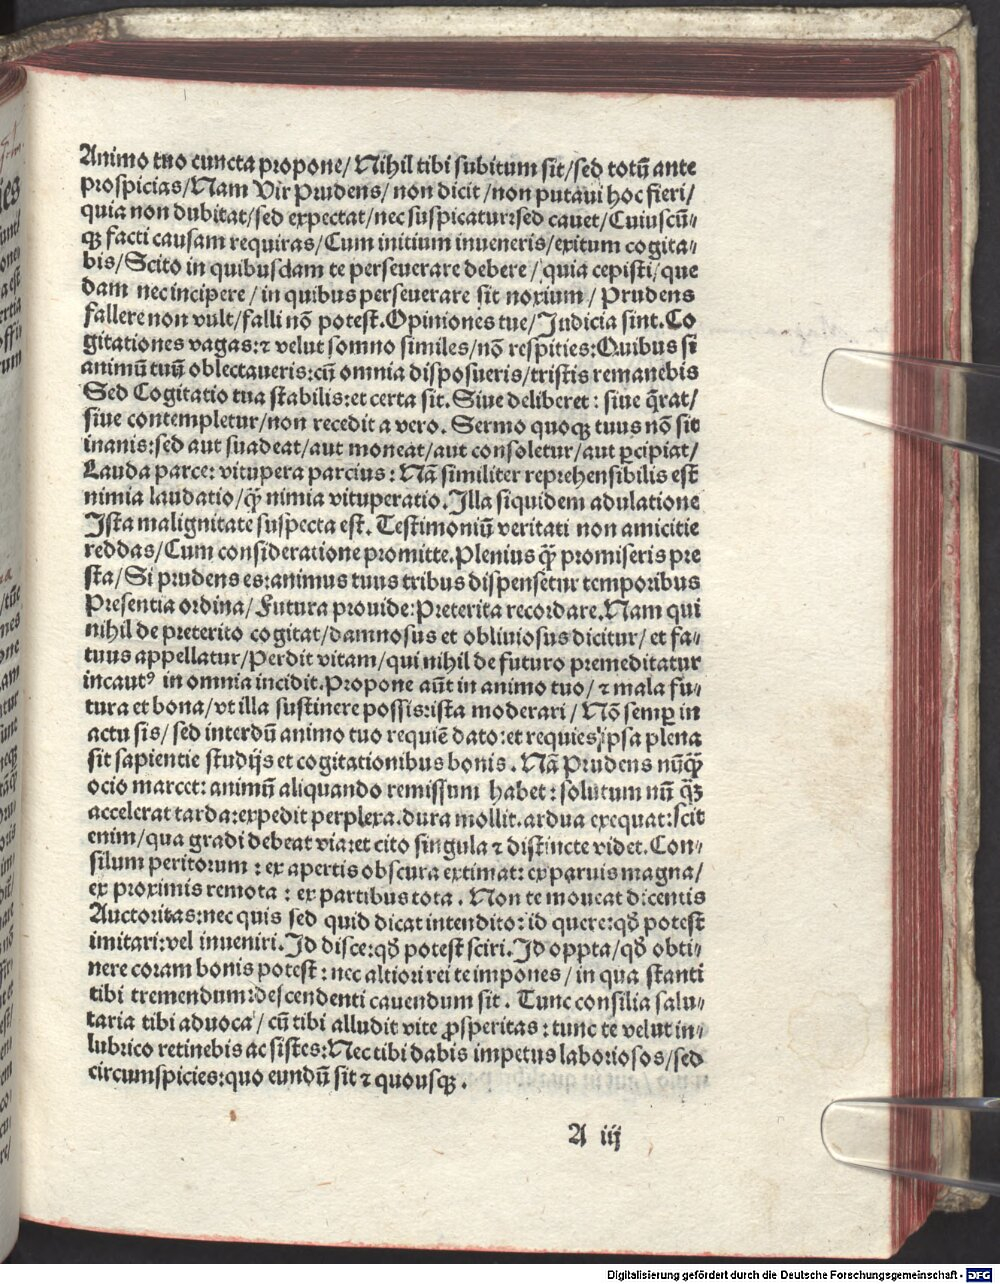 Animo tuo cuncta propone/Nihil tibi subitum sit/sed totū ante
prospicias/Nam Vir Prudens/ non dicit /non putaui hoc fieri/
quia non dubitat/sed expectat/nec suspicatur:sed cauet/Cuiuscū⸗
qꝫ facti causam requiras/Cum initium inueneris/exitum cogita⸗
bis/Scito in quibusdam te perseuerare debere / quia cepisti/que
dam nec incipere / in quibus perseuerare sit noxium / Prudens
fallere non vult/falli nō potest.Opiniones tue/Judicia sint.Co
gitationes vagas:⁊ velut somno similes/nō respities:Quibus si
animū tuū oblectaueris:cū omnia disposueris/tristis remanebis
Sed Cogitatio tua stabilis:et certa sit.Siue deliberet : siue q̄rat/
siue contempletur/non recedit a vero. Sermo quoqꝫ tuus nō sit
inanis:sed aut suadeat/aut moneat/aut consoletur/aut ꝑcipiat/
Lauda parce: vitupera parcius : Nā similiter reprehensibilis est
nimia laudatio/q̄ꝫ nimia vituperatio.Illa siquidem adulatione
Ista malignitate suspecta est. Testimoniū veritati non amicitie
reddas/Cum consideratione promitte.Plenius q̄ꝫ promiseris pre
sta/Si prudens es:animus tuus tribus dispensetur temporibus
Presentia ordina/Futura prouide:Preterita recordare.Nam qui
nihil de preterito cogitat/damnosus et obliuiosus dicitur/ et fa⸗
tuus appellatur/Perdit vitam/qui nihil de futuro premeditatur
incautꝰ in omnia incidit.Propone aūt in animo tuo/ ⁊ mala fu⸗
tura et bona/vt illa sustinere possis:ista moderari / Nō semꝑ in
actu sis/ sed interdū animo tuo requiē dato:et requies ipsa plena
sit sapientie studijs et cogitationibus bonis . Nā Prudens nūq̄ꝫ
ocio marcet: animū aliquando remissum habet : solutum nū q̄ꝫ
accelerat tarda:expedit perplexa.dura mollit.ardua exequat:scit
enim/qua gradi debeat via:et cito singula ⁊ distincte videt.Con⸗
silum peritorum : ex apertis obscura extimat: ex paruis magna/
ex proximis remota : ex partibus tota . Non te moueat dicentis
Auctoritas:nec quis sed quid dicat intendito: id quere:qđ potest
imitari:vel inueniri.Id disce:qđ potest sciri.Id oppta/qđ obti⸗
nere coram bonis potest : nec altiori rei te impones / in qua stanti
tibi tremendum:descendenti cauendum sit . Tunc consilia salu⸗
taria tibi aduoca / cū tibi alludit vite ꝓsperitas : tunc te velut in⸗
lubrico retinebis ac sistes:Nec tibi dabis impetus laboriosos/sed
circumspicies:quo eundū sit ⁊ quousqꝫ .
A iij
Digitalisierung gefördert durch die Deutsche Forschungsgemeinschaft - DFG